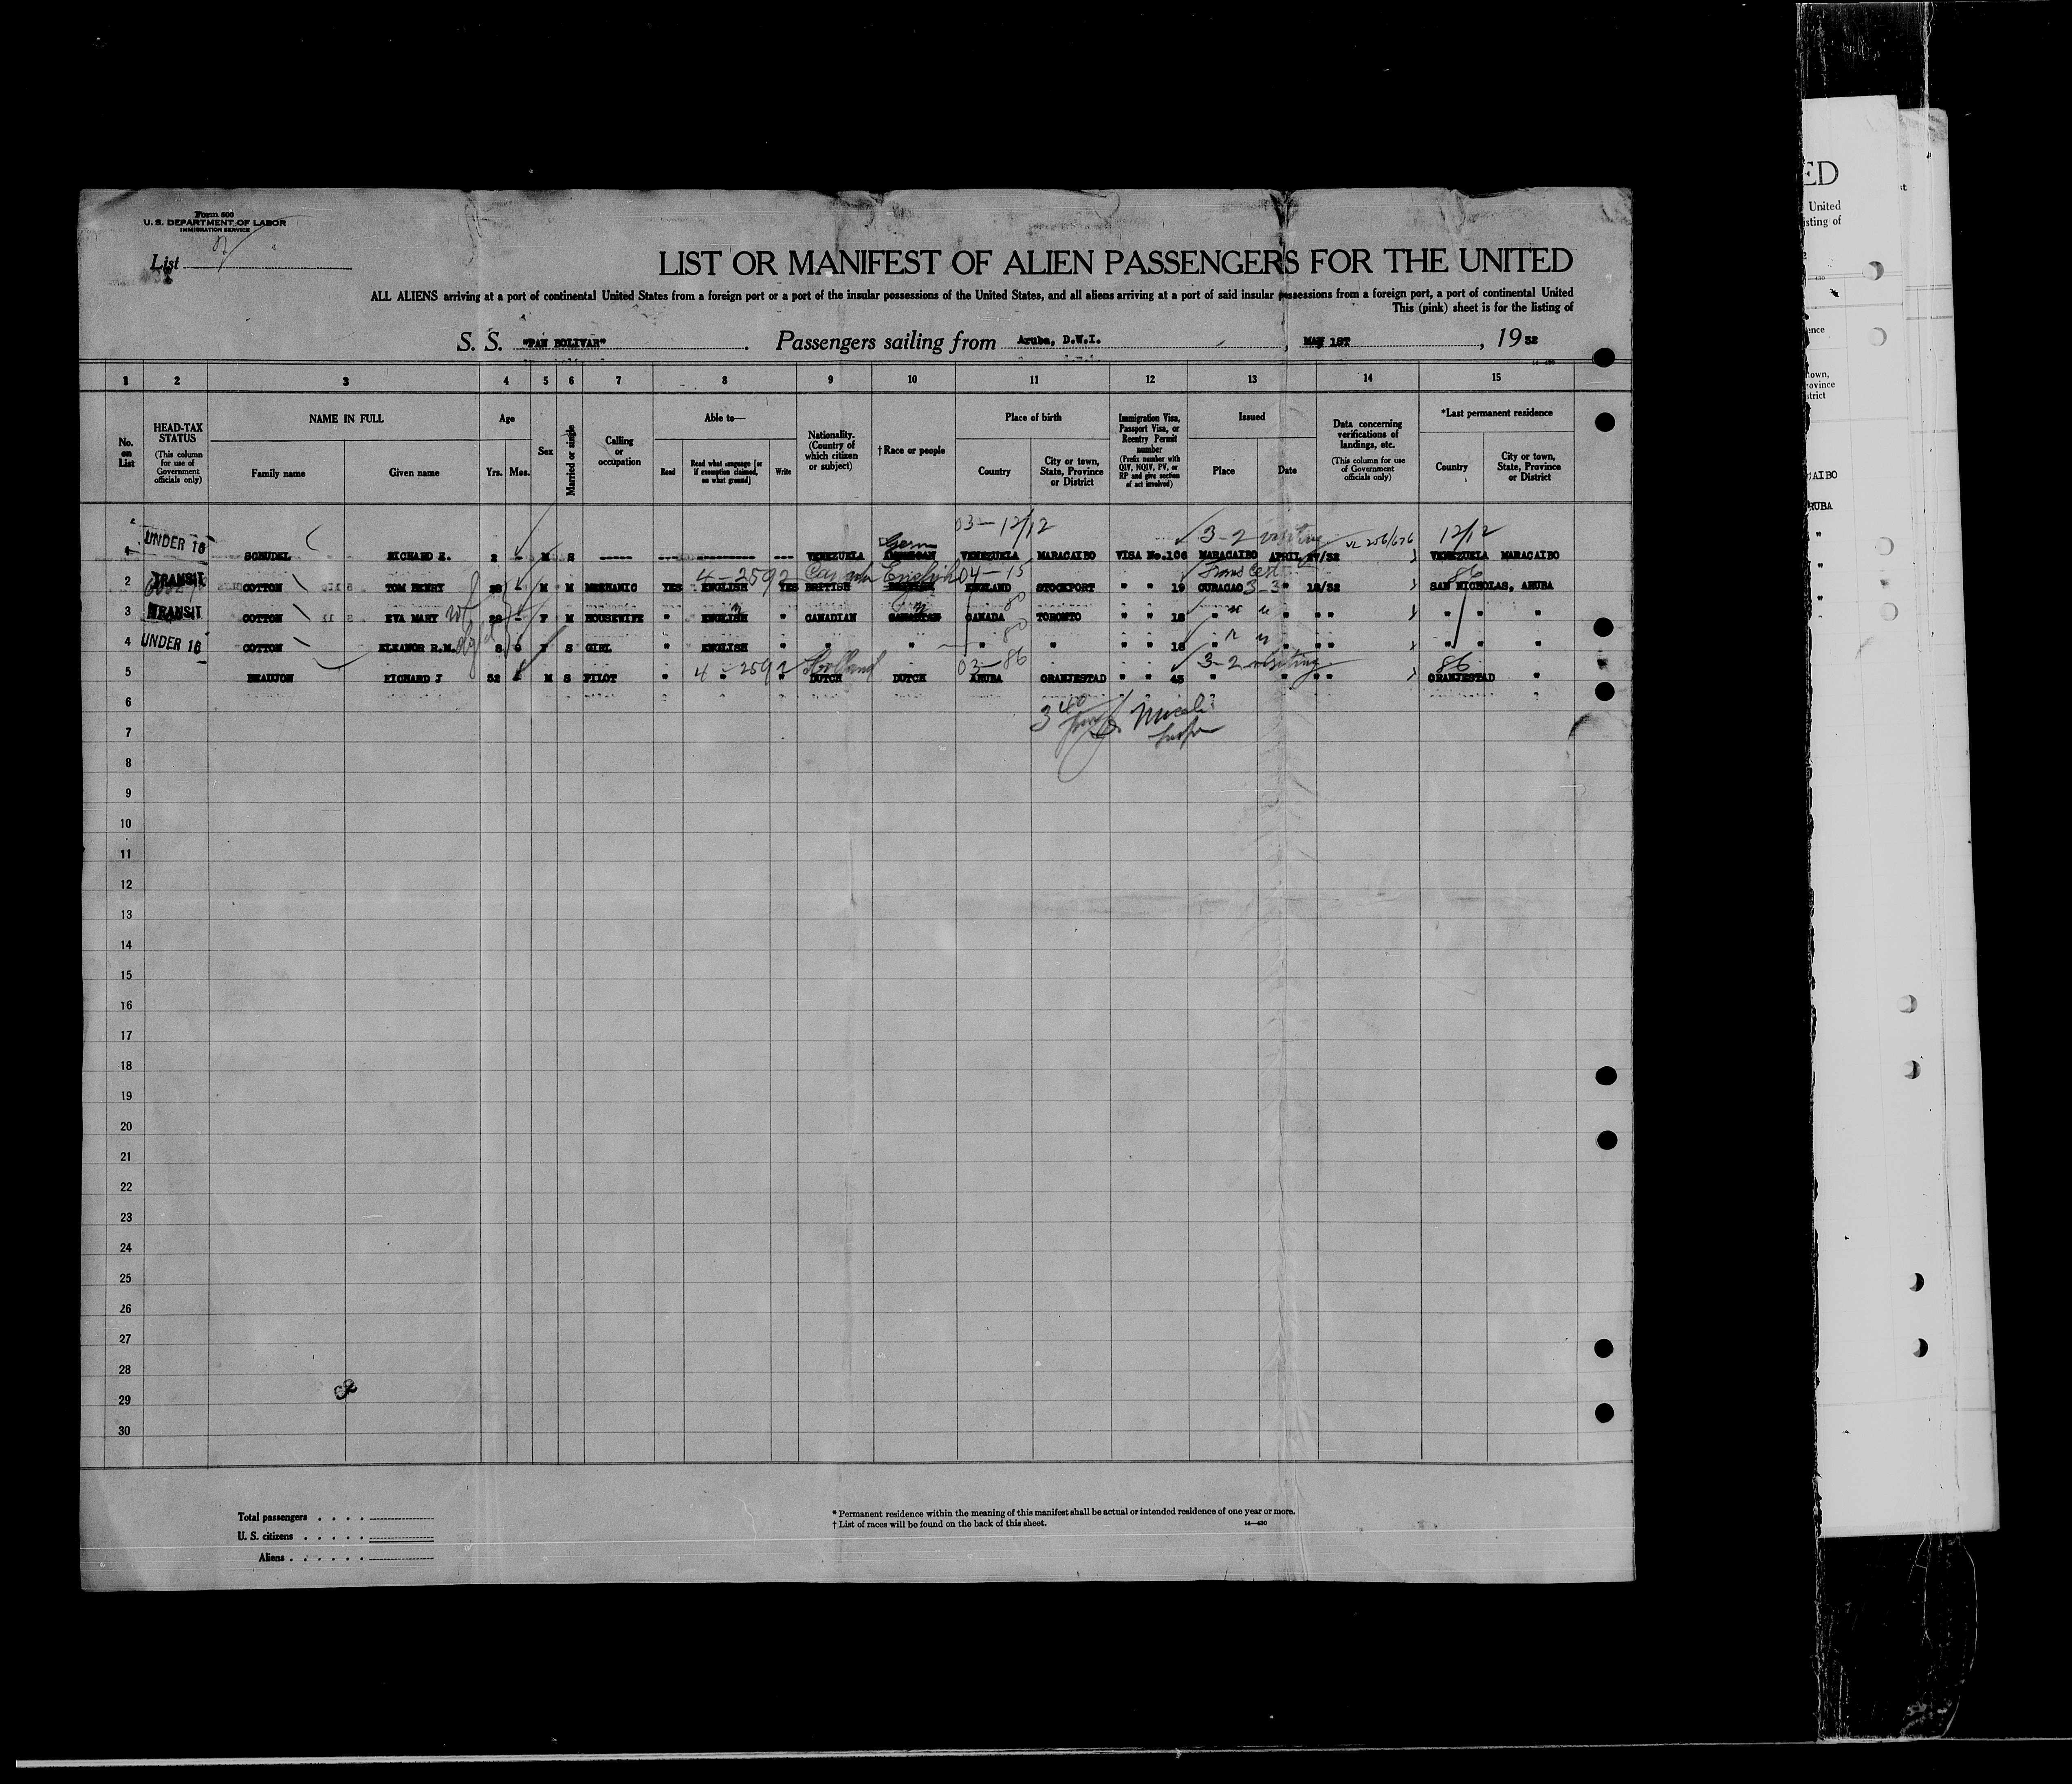 Form 500
U. S. DEPARTMENT OF LABOR
IMMIGRATION SERVICE
List
LIST OR MANIFEST OF ALIEN PASSENGERS FOR THE UNITED
ALL ALIENS arriving at a port of continental United States from a foreign port or a port of the insular possessions of the United States, and all aliens arriving at a port of said insular possessions from a foreign port, a port of continental United
This (pink) sheet is for the listing of
S. S. "PAN BOLIVAR" Passengers sailing from Aruba, D.W.I. , MAY 1ST , 19 32
1 2 3 4 5 6 7 8 9 10 11 12 13 14 15
No. on List
HEAD-TAX STATUS (This column for use of Government officials only)
NAME IN FULL
Family name Given name
Age
Yrs. Mos.
Sex
Married or single
Calling or occupation
Able to—
Read Read what language [or if exemption claimed, on what ground] Write
Nationality. (Country of which citizen or subject)
†Race or people
Place of birth
Country City or town, State, Province or District
Immigration Visa, Passport Visa, or Reentry Permit number (Prefix number with QIV, NQIV, PV, or RP and give section of act involved)
Issued
Place Date
Data concerning verifications of landings, etc. (This column for use of Government officials only)
*Last permanent residence
Country City or town, State, Province or District
03—12/12 3-2 visiting VL 256/676 12/12
UNDER 16 Germ
1 SCHUDEL RICHARD E. 2 - M S ----- --- ---------- --- VENEZUELA VENEZUELA MARACAIBO VISA No.106 MARACAIBO APRIL 27/32 VENEZUELA MARACAIBO
4-2592 English 04-15 86
2 TRANSIT COTTON TOM HENRY M M MECHANIC YES ENGLISH YES BRITISH ENGLAND STOCKPORT " " 19 CURACAO 3-3 " 18/32 SAN NICHOLAS, ARUBA
3 TRANSIT COTTON EVA MARY wf - F M HOUSEWIFE " ENGLISH " CANADIAN CANADIAN CANADA 80 TORONTO " " 18 " " " " " " "
4 UNDER 16 COTTON ELEANOR R.M. F S GIRL " ENGLISH " " " " 80 " " " 18 " " " " " " "
4-2592 Holland 03-86 3-2 visiting 86
5 BEAUJON RICHARD J 32 M S PILOT " " " DUTCH DUTCH ARUBA ORANJESTAD " " 45 " " " " ORANJESTAD "
6
7
8
9
10
11
12
13
14
15
16
17
18
19
20
21
22
23
24
25
26
27
28
29
30
Total passengers . . . .
U. S. citizens . . . . .
Aliens . . . . . .
* Permanent residence within the meaning of this manifest shall be actual or intended residence of one year or more.
† List of races will be found on the back of this sheet.
14—430
ED
United
isting of